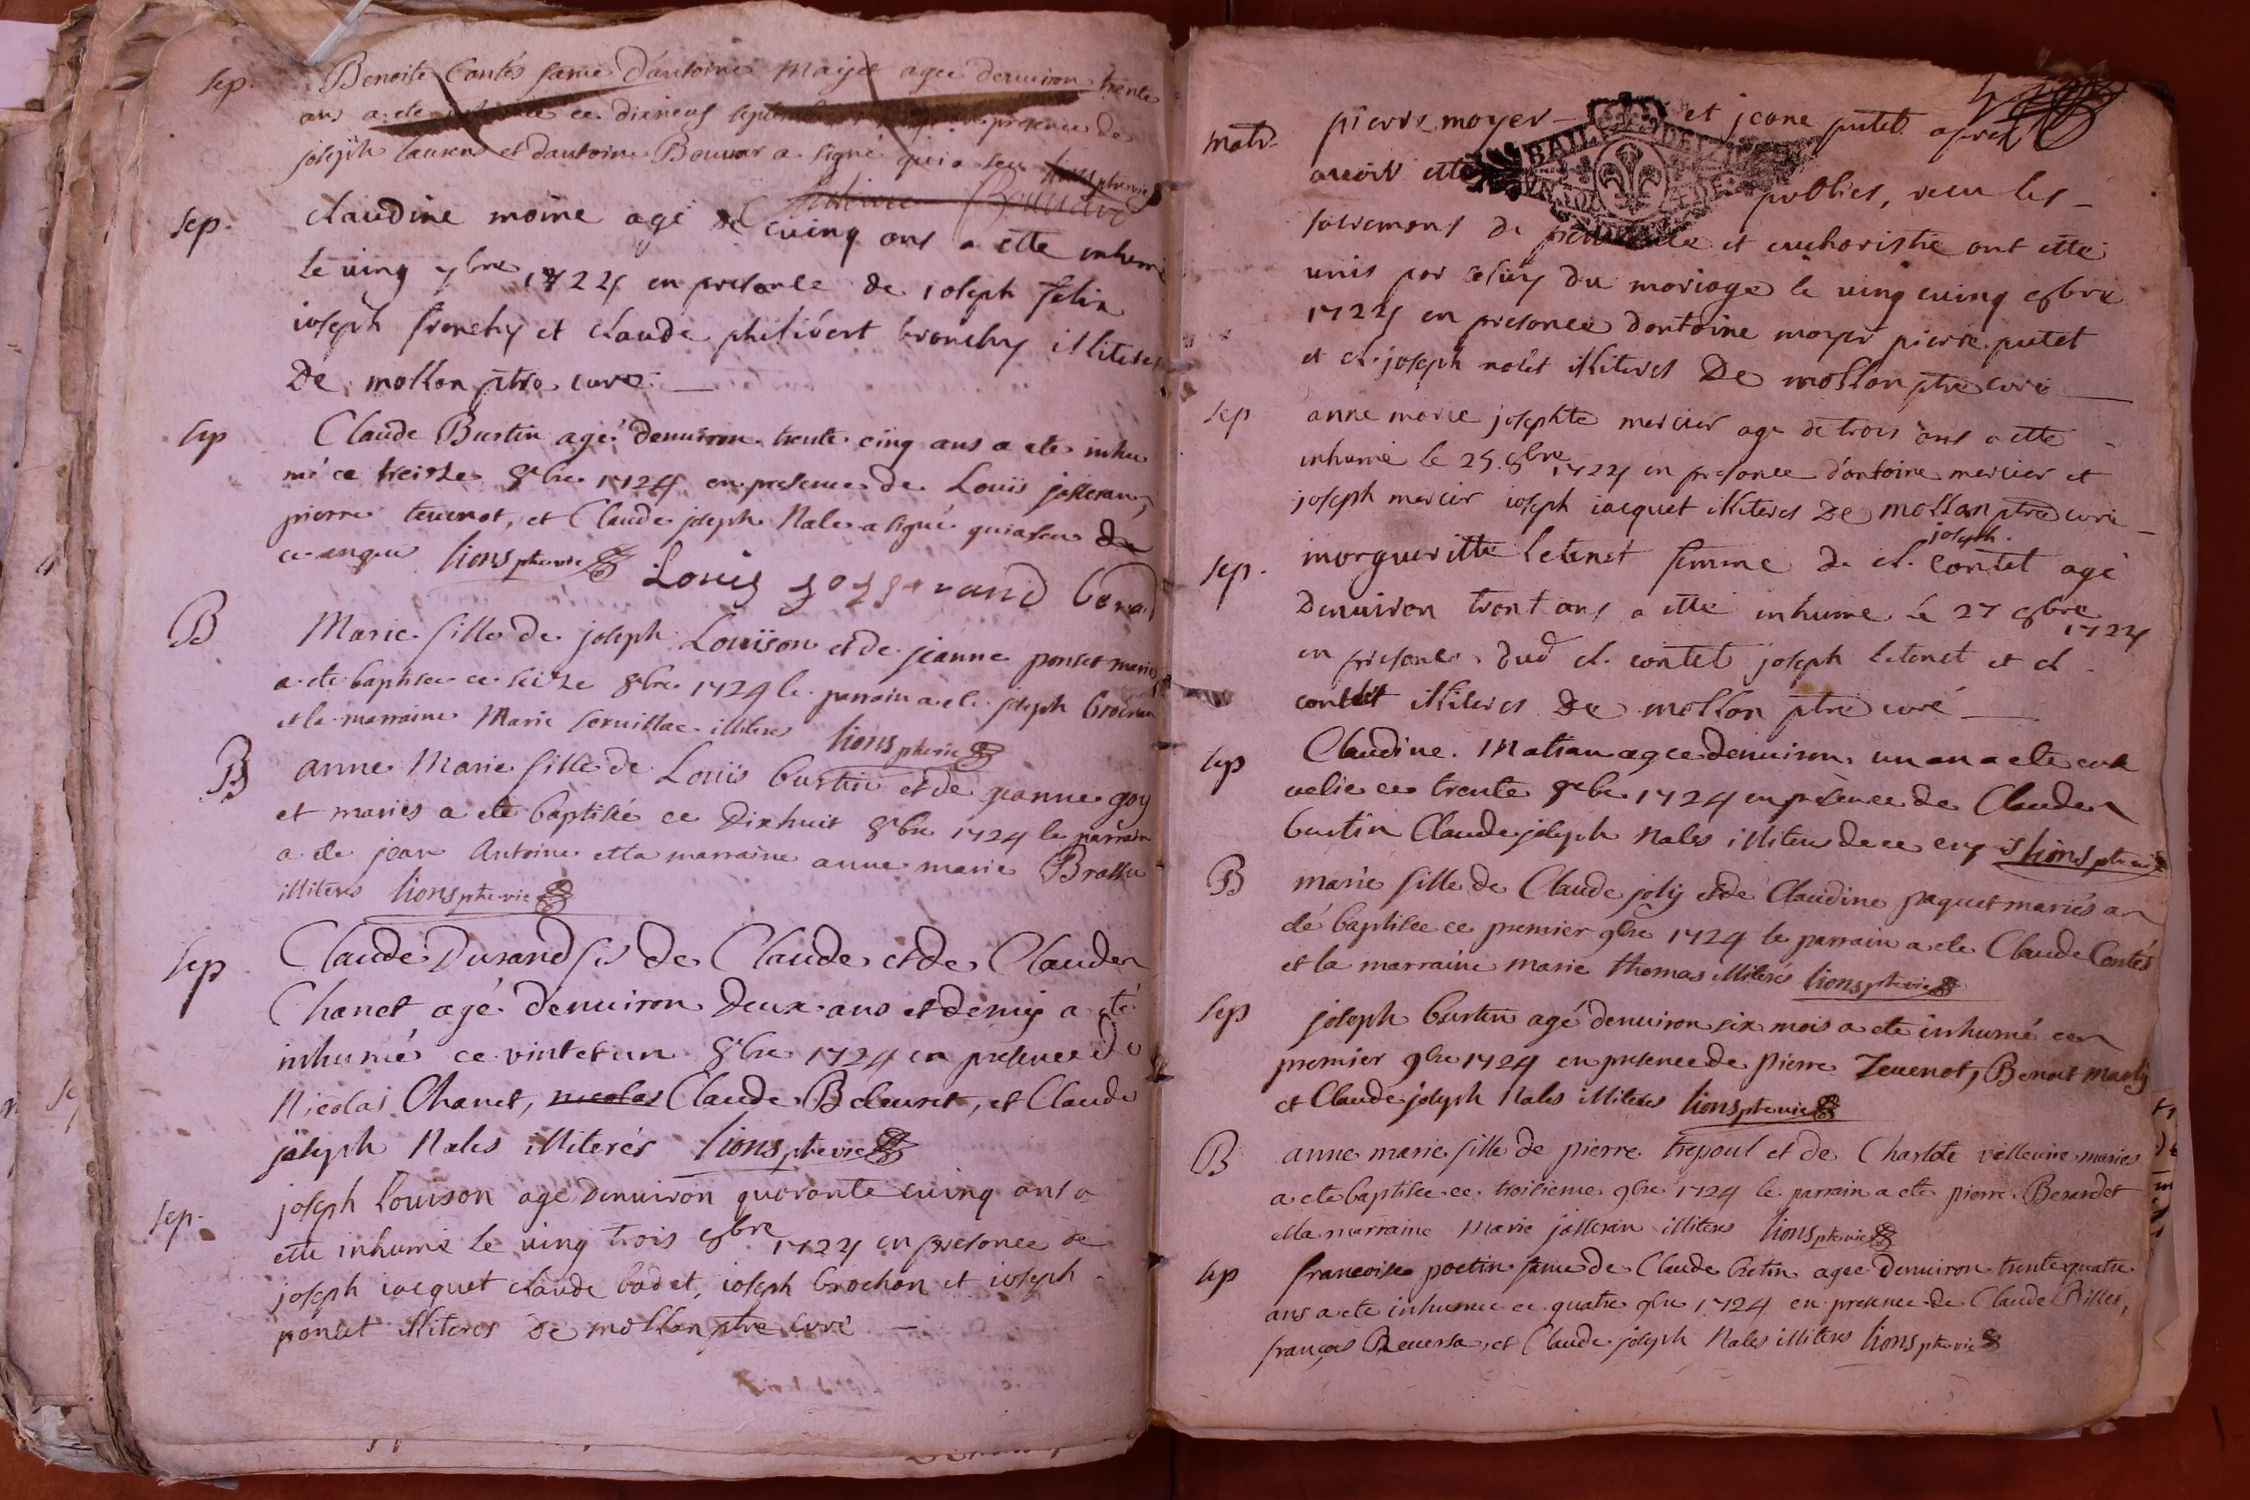 sep. Benoite Contés fame d'antoine Mayet agee denuiron trente
ans a ete ce dixneuf presence de
joseph et dantoine Bouuar a signé qui a seu lions ptre vic
sep. claudine moine agé de cuinq ans a ette inhumé
le uing 7bre 1724 en presance de ioseph felix
ioseph fronchy et claude philibert bronchy illiteres
De mollon ptre curé
sep Claude Burtin agé denuiron trente cinq ans a ete inhu
mé ce treisze 8bre 1724 en presence de Louïs josseran,
pierre teuenot, et Claude joseph Nales a signé qui a seu de
ce enquis lions ptre vic Louis josserand
B Marie fille de joseph Louïson et de jeanne ponset mariés
a ete baptisee ce seisze 8bre 1724 le parrain a ete joseph brochan
et la marraine Marie illiteres lions ptre vic
B anne Marie fille de Louïs burtin et de jeanne goy
et mariés a ete baptisée ce Dixhuit 8bre 1724 le parrain
a ete jean Antoine et la marraine anne marie
illiteres lions ptre vic
sep Claude Durand fis de Claude et de Claude
Chanet agé denuiron deux ans et demij a eté
inhumé ce vint et un 8bre 1724 en presence de
Nicolas Chanet, nicolas Claude Beleuret, et Claude
joseph Nales illiterés lions ptre vic
sep. joseph Louison age denuiron quarante cuinq ans a
ette inhumé le uing trois 8bre 1724 en presance de
joseph iacquet claude badet, ioseph brochon et ioseph
ponset illiteres De mollon ptre curé
matr. pierre moyer et jeane putet apres
auoir ette publies, receu les
sacremans de penitence et eucharistie ont ette
unis par celuy du mariage le uing cuinq 8bre
1724 en presance dantoine moyer pierre putet
et cl. joseph nales illiteres De mollon ptre curé
sep anne marie josephte mercier age de trois ans a ette
inhumé le 25 8bre 1724 en presance d'antoine mercier et
joseph mercier ioseph iacquet illiteres De mollon ptre curé
joseph.
sep. marguerittte letenet femme de cl. contet agé
Denuiron trent ans a ette inhumé le 27 8bre 1724
en presance dud cl. contet joseph letenet et cl
contet illiteres De mollon ptre curé
sep Claudine Matrau agee denuiron un an a ete enSe
uelie ce trente 8bre 1724 en presence de Claude
burtin Claude joseph Nales illiteres de ce enquis lions ptre vic
B marie fille de Claude joly et de Claudine paquet mariés a
eté baptisee ce premier 9bre 1724 le parrain a ete Claude Contés
et la marraine Marie thomas illiteres lions ptre vic
sep joseph burtin agé denuiron six mois a ete inhumé ce
premier 9bre 1724 en presence de pierre Teuenot, Benoit
et Claude joseph Nales illiteres lions ptre vic
B anne marie fille de pierre trepoul et de Charlote mariés
a ete baptisee ce troisieme 9bre 1724 le parrain a ete pierre Berardet
et la marraine Marie josseran illiteres lions ptre vic
sep francoise poetin fame de Claude bretin agee denuiron trente quatre
ans a ete inhumee ce quatre 9bre 1724 en presence de Claude Billet,
françois Reuersa, et Claude joseph Nales illiteres lions ptre vic